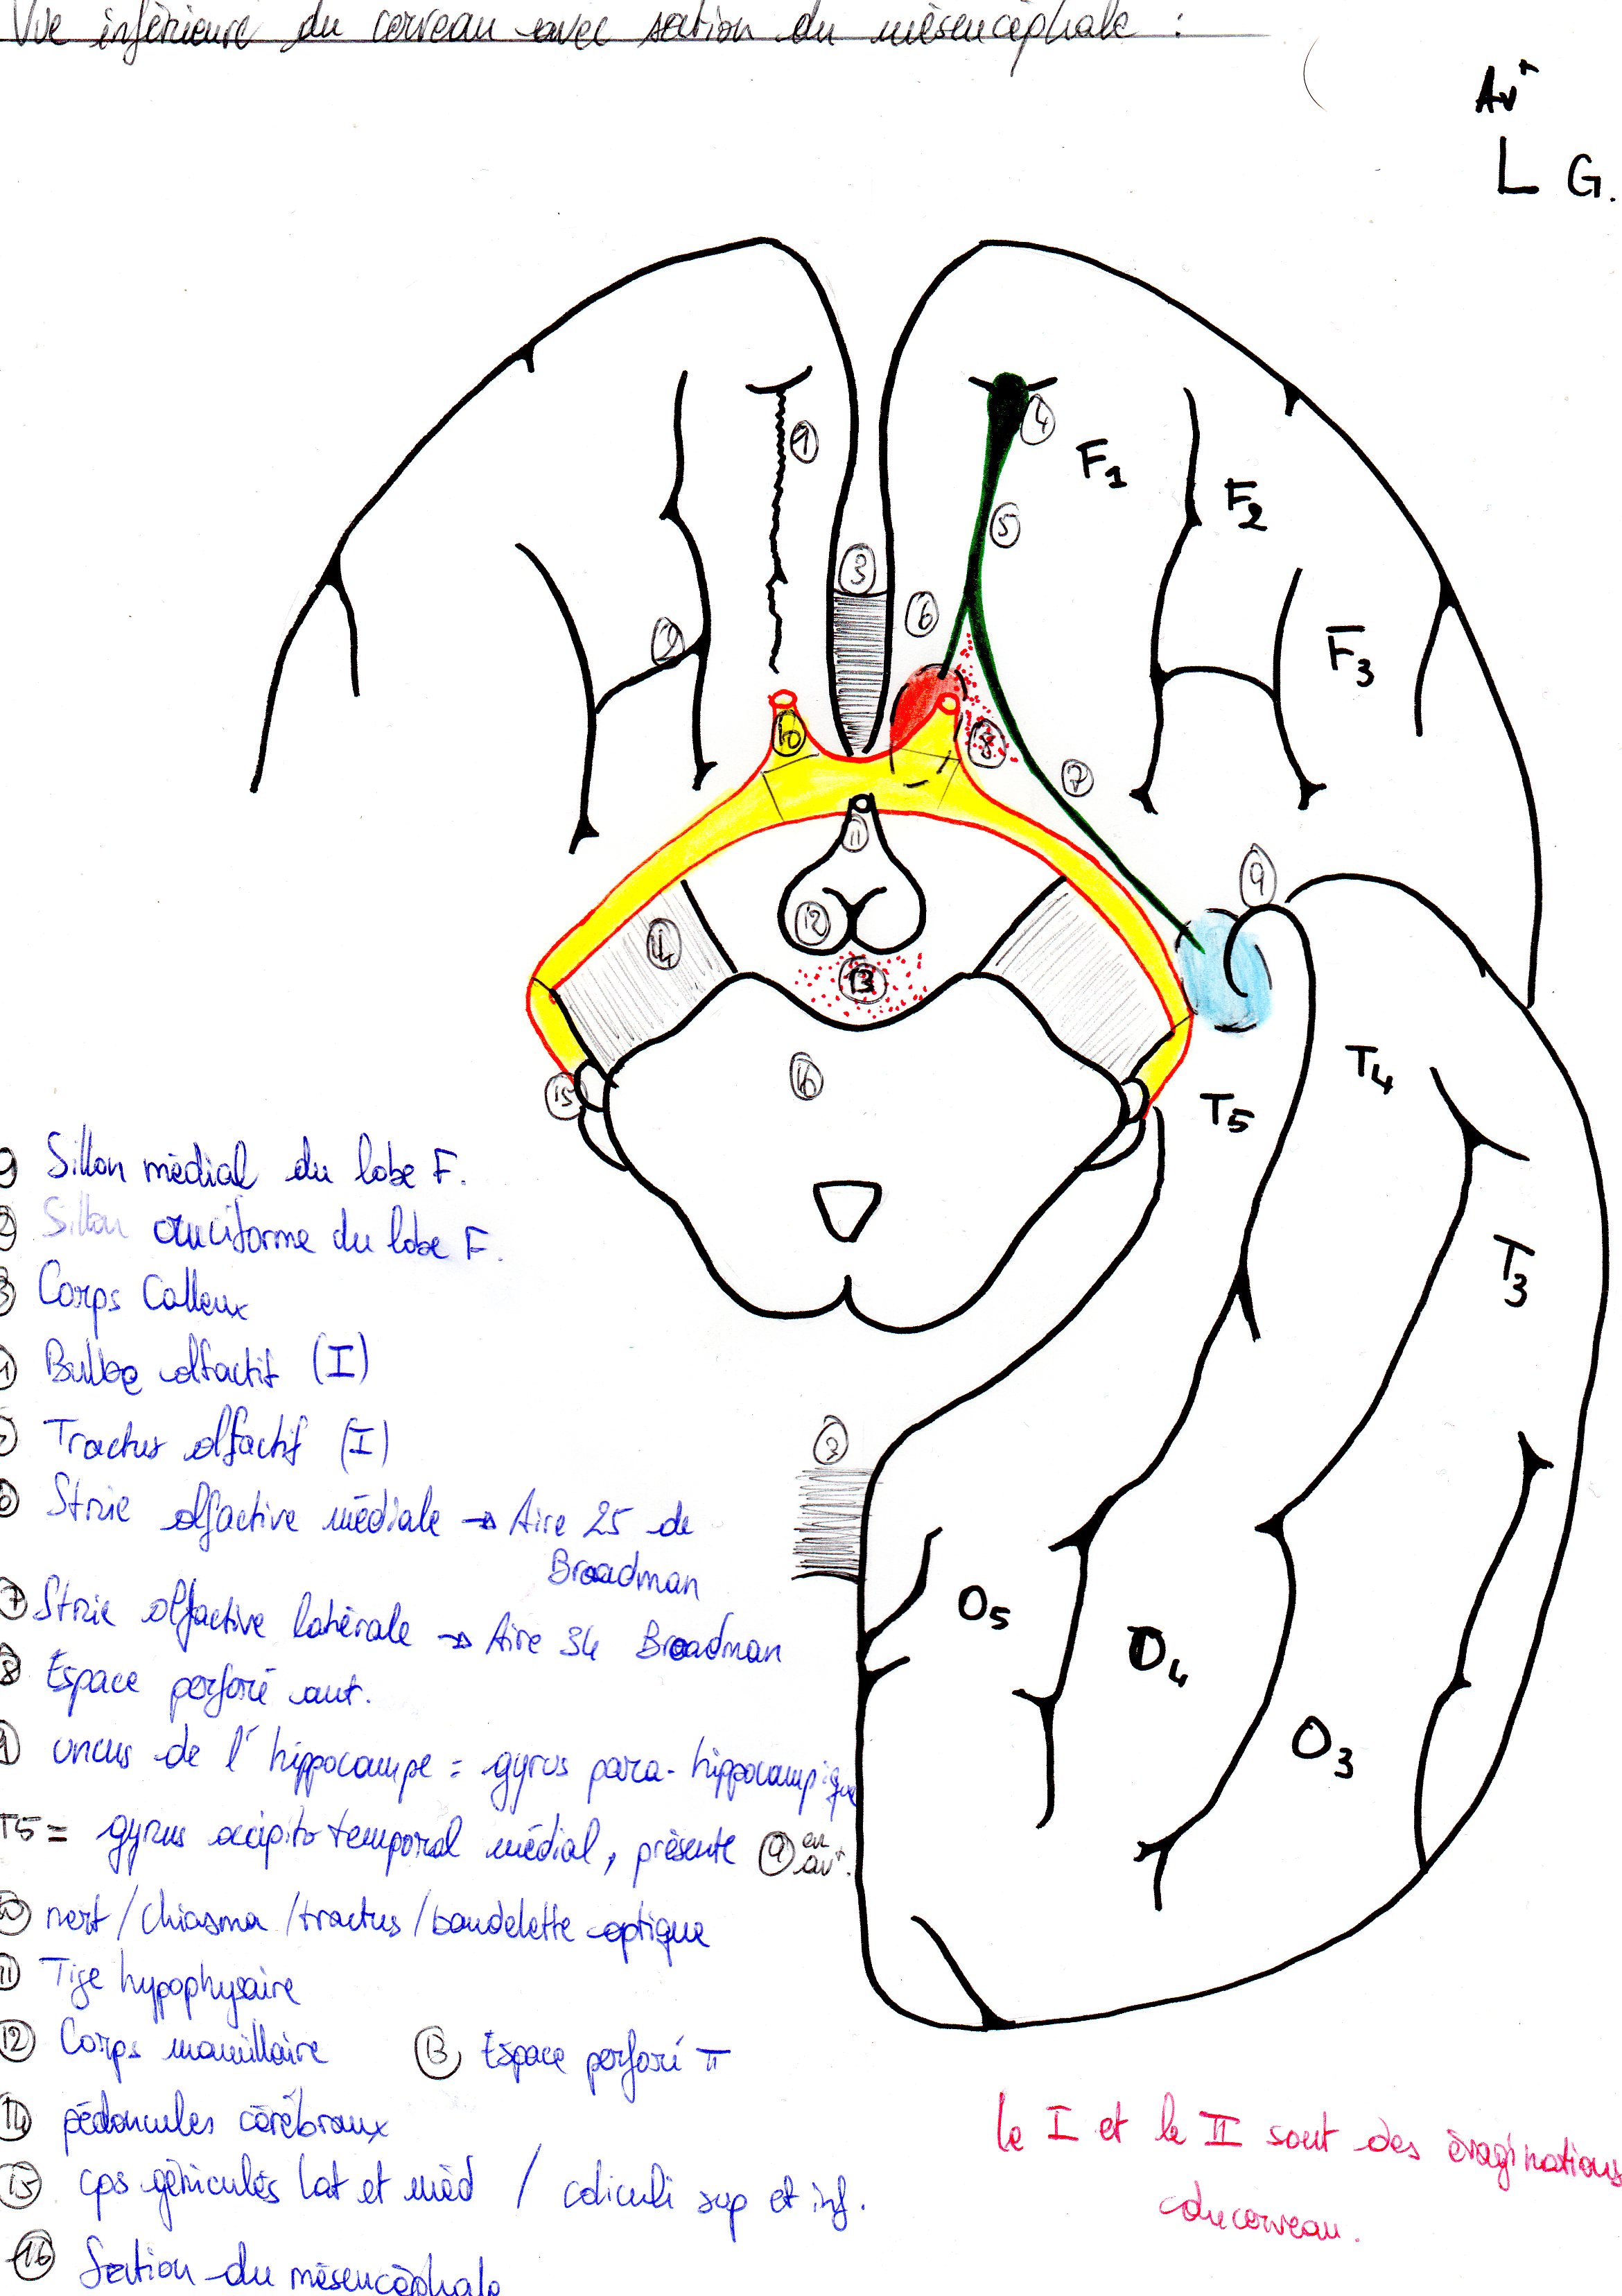 Vue inférieure du cerveau avec section du mésencéphale :
Avt
G.
9
4
F1
5
F2
3
6
F3
2
10
8
7
11
9
12
14
13
16
15
T4
T5
T3
3
O5
O4
O3
9 Sillon médial du lobe F.
2 Sillon cruciforme du lobe F.
3 Corps Calleux
4 Bulbe olfactif (I)
5 Tractus olfactif (I)
6 Strie olfactive médiale → Aire 25 de
Broadman
7 Strie olfactive latérale → Aire 34 Broadman
8 Espace perforé ant.
9 uncus de l'hippocampe = gyrus para-hippocampique
T5 = gyrus occipito temporal médial, présente 9 en avt.
10 nerf / chiasma / tractus / bandelette optique
11 Tige hypophysaire
12 Corps mamillaire 13 Espace perforé π
14 pédoncules cérébraux
15 cps géniculés lat et méd / coliculi sup et inf.
16 Section du mésencéphale
le I et le II sont des évaginations
du cerveau.